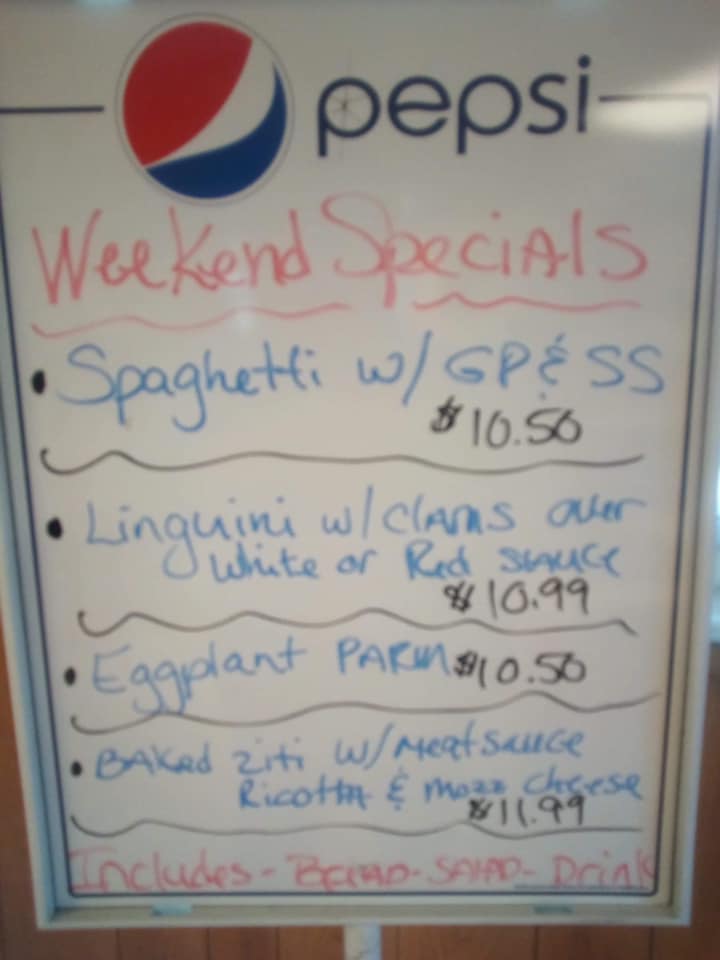 pepsi
Weekend Specials
• Spaghetti w/ GP & SS
$10.50
• Linguini w/ clams over
white or Red sauce
$10.99
• Eggplant PARM $10.50
• BAKed ziti w/ Meat sauce
Ricotta & Mozz cheese
$11.99
Includes - Bread - SALAD - Drink